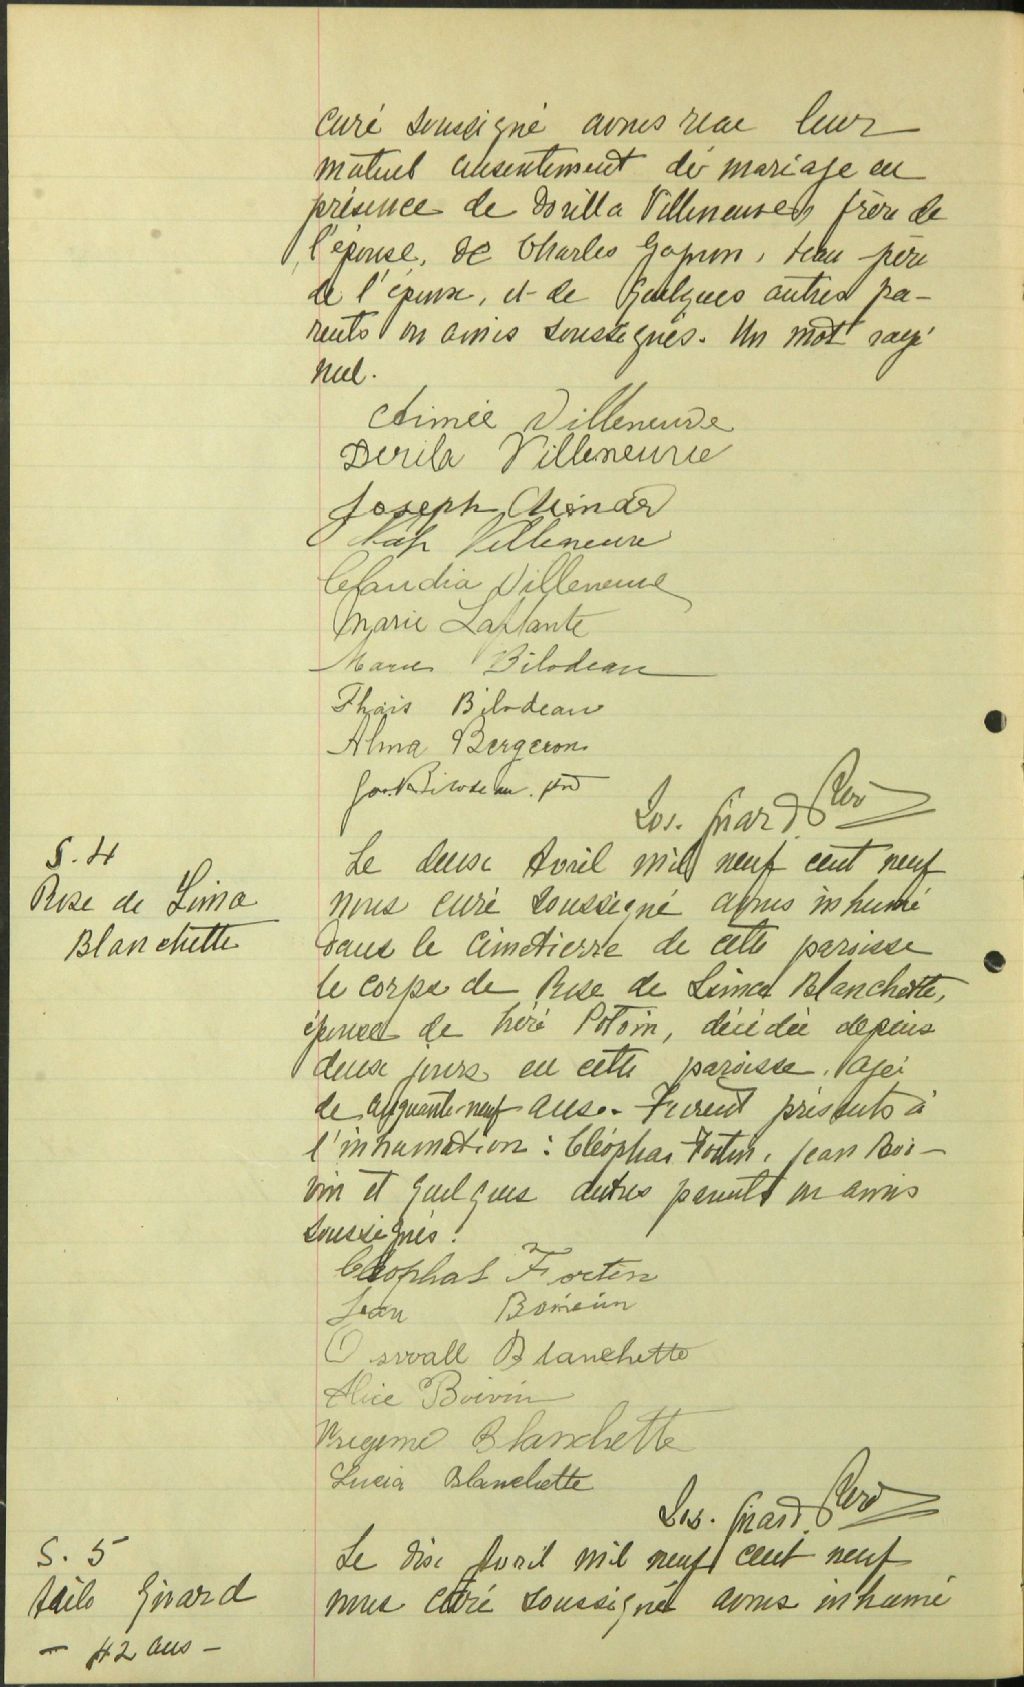 curé soussigné avons reçu leur
mutuel consentement de mariage en
présence de Dorilla Villeneuve, frère de
l'épouse, de Charles Gagnon, beau-père
de l'époux, et de quelques autres pa-
rents ou amis soussignés. Un mot rayé
nul.
Aimée Villeneuve
Dorila Villeneuve
Joseph
Nap Villeneuve
Claudia Villeneuve
Marie Laplante
Marie Bilodeau
Thais Bilodeau
Alma Bergeron
Jos. Girard Ptre
S. 4
Rose de Lima
Blanchette
Le deux Avril mil neuf cent neuf
nous curé soussigné avons inhumé
dans le cimetierre de cette paroisse
le corps de Rose de Lima Blanchette,
épouse de Potvin, décédée depuis
deux jours en cette paroisse, agée
de cinquante-neuf ans. - Furent présents à
l'inhumation : Cléophas Fortin, Jean Boi-
vin et quelques autres parents ou amis
soussignés.
Cléophas Fortin
Jean Boivin
Oswall Blanchette
Alice Boivin
Blanchette
Lucia Blanchette
Jos. Girard Ptre
S. 5
Girard
- 42 ans -
Le dix Avril mil neuf cent neuf
nous curé soussigné avons inhumé